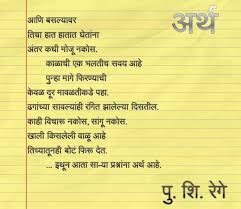 अर्थ
आणि बसल्यावर
तिचा हात हातात घेतांना
अंतर कधी मोजू नकोस.
काळाची एक भलतीच सवय आहे
पुन्हा मागे फिरण्याची
केवळ दूर मावळतीकडे पहा.
ढगांच्या सावल्यांही रंगित झालेल्या दिसतील.
काही विचारू नकोस, सांगू नकोस.
खाली किसलेली वाळू आहे
तिच्यातूनही बोटं फिरू देत.
... इथून आता साऱ्या प्रश्नांना अर्थ आहे.
पु. शि. रेगे